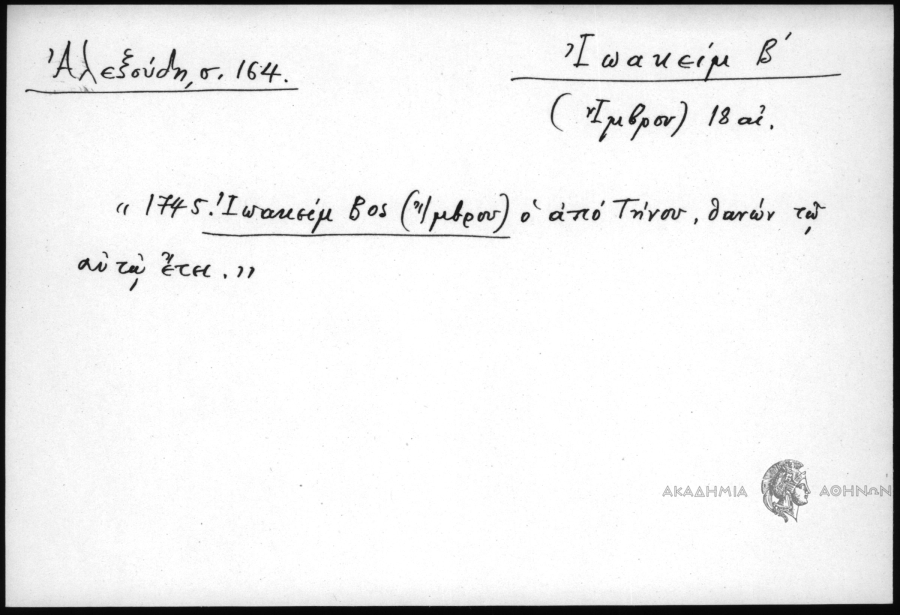 Ἀλεξούδη, σ. 164.
Ἰωακείμ Β΄
(Ἴμβρου) 18 αἰ.
" 1745. Ἰωακείμ Βος (Ἴμβρου) ὁ ἀπό Τήνου, θανών τῷ
αὐτῷ ἔτει. "
ΑΚΑΔΗΜΙΑ ΑΘΗΝΩΝ